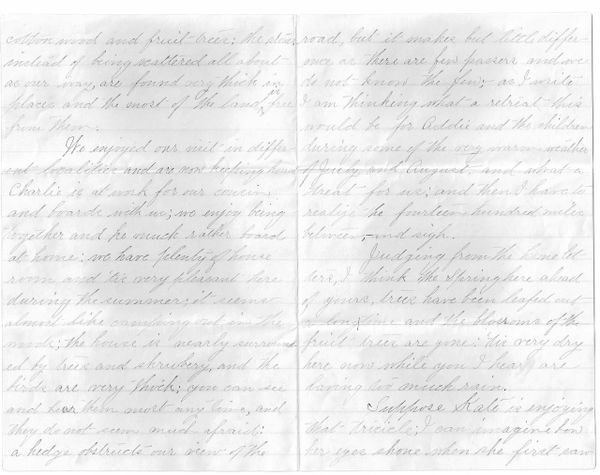 cotton wood and fruit trees; the stones
instead of being scattered all about
as our way, are found very thick in
places and the most of the land is free
from them.
We enjoyed our visit in differ-
ent localities and are now keeping house
Charlie is at work for our cousin
and boards with us; we enjoy being
together and he much rather board
at home: we have plenty of house
room and 'tis very pleasant here
during the summer; it seems
almost like camping out in the
woods; the house is nearly surround
ed by trees and shrubery, and the
birds are very thick; you can see
and hear them most any time, and
they do not seem much afraid:
a hedge obstructs our view of the
road, but it makes but little differ-
ence as there are few passers and we
do not know the few; as I write
I am thinking what a retreat this
would be for Addie and the children
during some of the very warm weather
of July and August, and what a
treat for us; and then I have to
realize the fourteen hundred miles
between, and sigh.
Judging from the home let
ters, I think the Spring here ahead
of yours, trees have been leafed out
a long time and the blossoms of the
fruit trees are gone: 'tis very dry
here now while you I hear are
having too much rain.
Suppose Kate is enjoying
that tricicle; I can imagine how
her eyes shone when she first saw